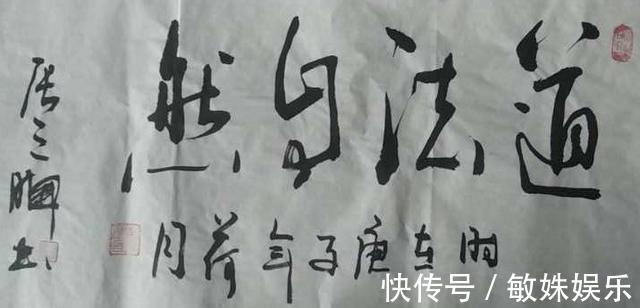 道法自然
时在庚子年荷月
张三 书
快传号 / 敏姝娱乐